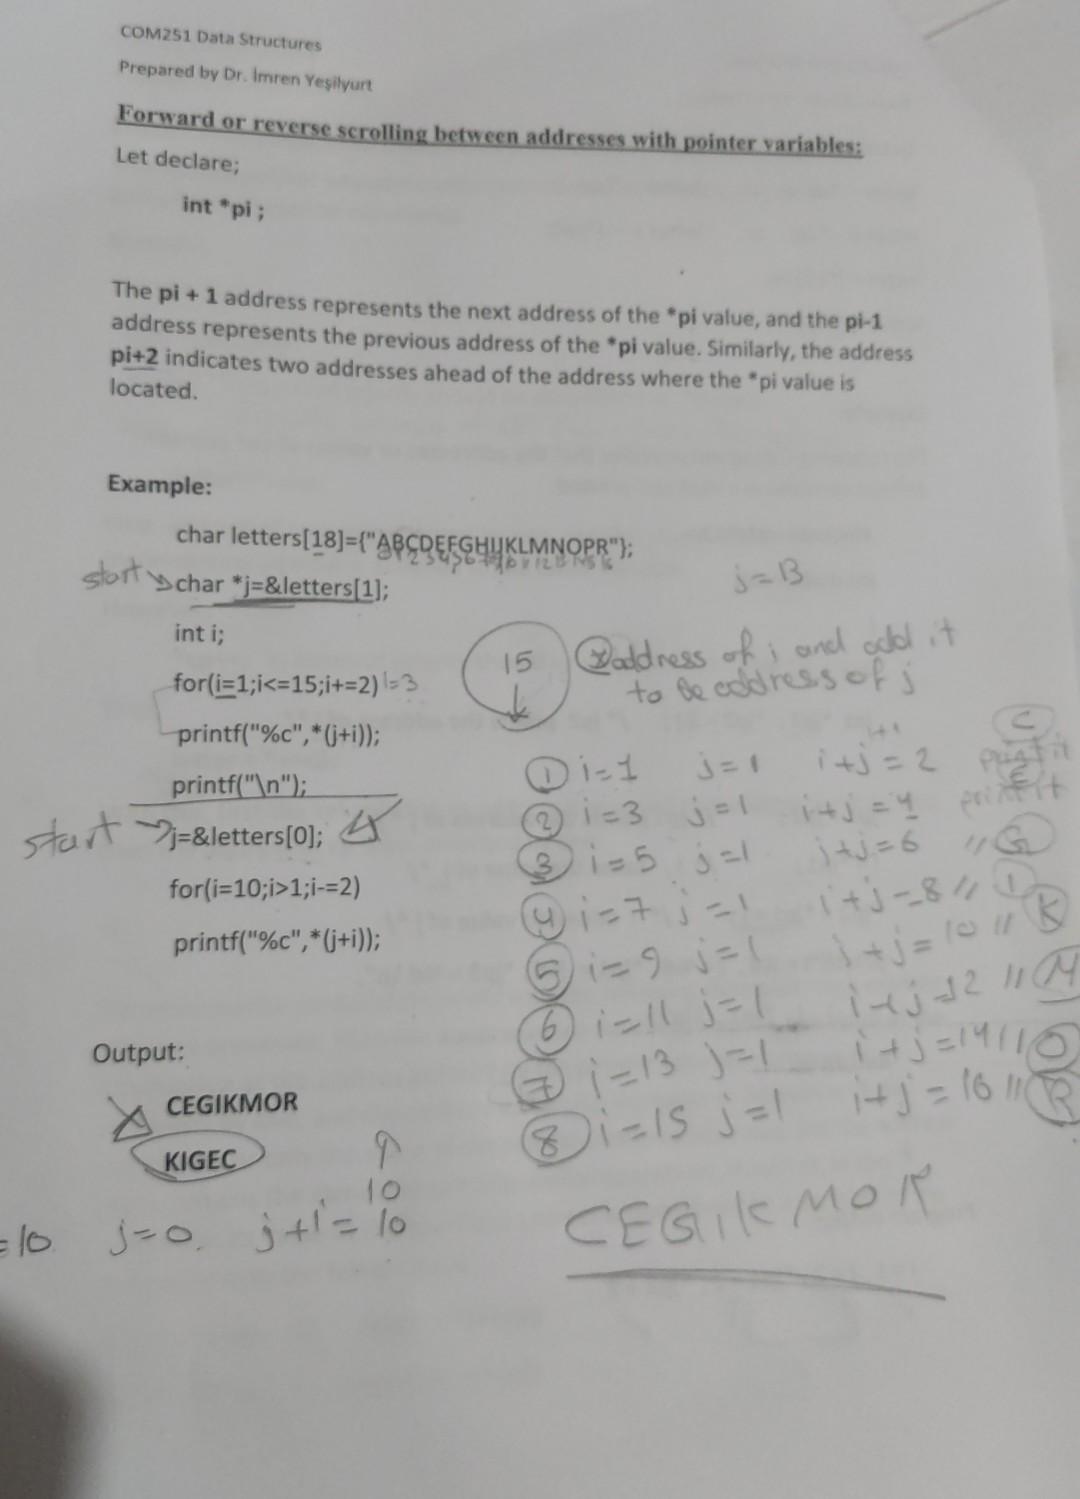 COM251 Data Structures
Prepared by Dr. İmren Yeşilyurt
Forward or reverse scrolling between addresses with pointer variables:
Let declare;
int *pi ;
The pi + 1 address represents the next address of the *pi value, and the pi-1
address represents the previous address of the *pi value. Similarly, the address
pi+2 indicates two addresses ahead of the address where the *pi value is
located.
Example:
char letters[18]={"ABCDEFGHIJKLMNOPR"};
start char *j=&letters[1];
j=B
int i;
for(i=1;i<=15;i+=2) i=3
15
address of i and add it
to be address of j
printf("%c",*(j+i));
i+1
C
1 i=1 j=1 i+j=2 print it
printf("\n");
E
2 i=3 j=1 i+j=4 print it
start j=&letters[0];
3 i=5 j=1 i+j=6 " G
for(i=10;i>1;i-=2)
4 i=7 j=1 i+j=8 " I
printf("%c",*(j+i));
5 i=9 j=1 i+j=10 " K
6 i=11 j=1 i+j=12 " M
Output:
7 i=13 j=1 i+j=14 " O
CEGIKMOR
8 i=15 j=1 i+j=16 " R
KIGEC
10
=10 j=0 j+i=10
CEGIKMOR